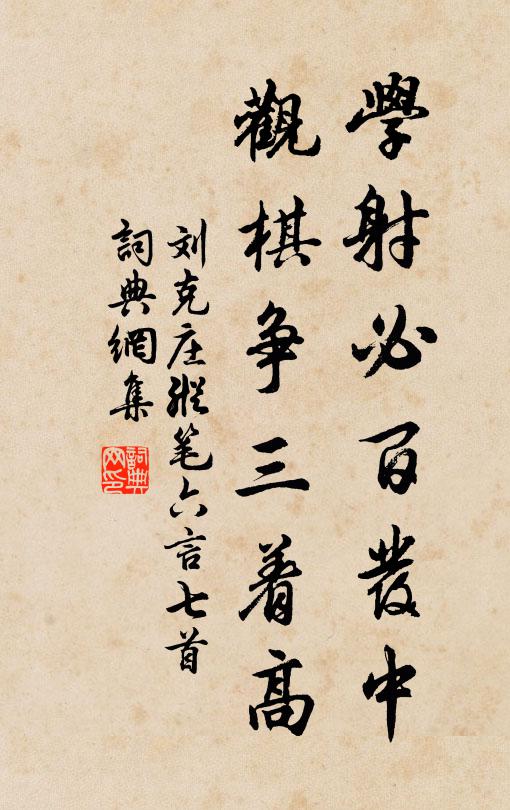 學射必百發中
觀棋争三着高
刘克庄縱笔六言七首
詞典網集
詞典網印